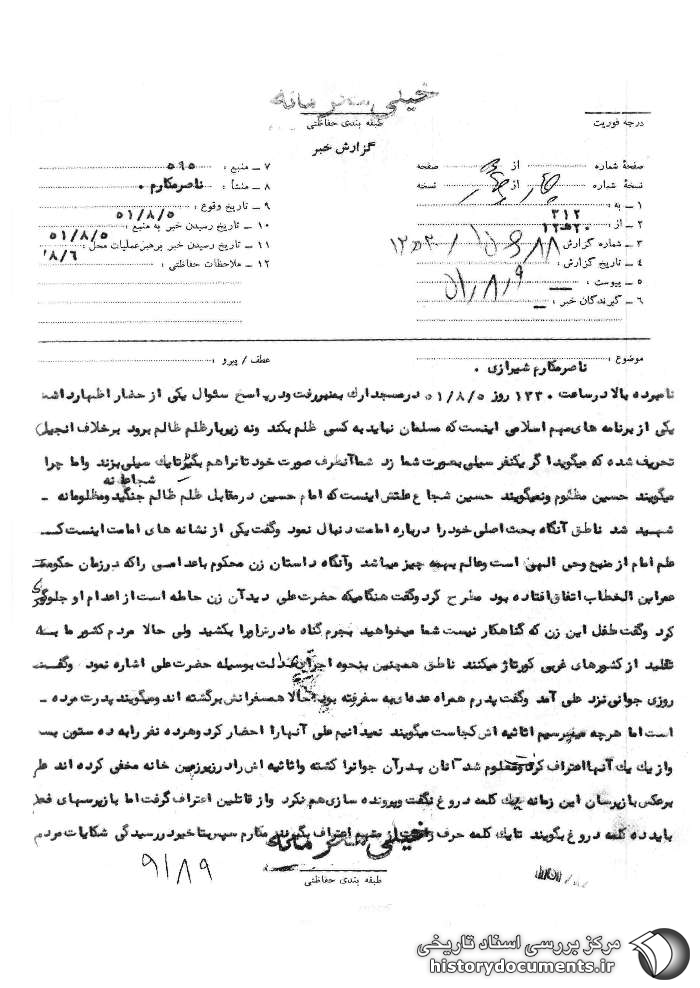 خیلی محرمانه
طبقه بندی حفاظتی
درجه فوریت
گزارش خبر
صفحهٔ شماره از صفحه
نسخهٔ شماره از نسخه
۱ ـ به : ۳۱۲
۲ ـ از : ۲۰ ه ۱۲
۳ ـ شماره گزارش
۴ ـ تاریخ گزارش :
۵ ـ پیوست :
۶ ـ گیرندگان خبر :
۷ ـ منبع : ۵۹۵
۸ ـ منشأ : ناصرمکارم .
۹ ـ تاریخ وقوع : ۵۱/۸/۵
۱۰ ـ تاریخ رسیدن خبر به منبع :
۱۱ ـ تاریخ رسیدن خبر برهبرعملیات محل : ۵۱/۸/۵
۱۲ ـ ملاحظات حفاظتی : ۸/۶
موضوع : ناصرمکارم شیرازی . عطف / پیرو :
نامبرده بالا درساعت ۱۳۳۰ روز ۵۱/۸/۵ درمسجدارك بمنبررفت ودرپاسخ سئوال یکی از حضار اظهارداشت
یکی از برنامه های مهم اسلامی اینست که مسلمان نباید به کسی ظلم بکند ونه زیربارظلم ظالم برود برخلاف انجیل(
تحریف شده که میگوید اگر یکنفر سیلی بصورت شما زد شماآنطرف صورت خود تانراهم بگیرتایك سیلی بزند واما چرا
شجاعانه
میگویند حسین مظلوم ونمیگویند حسین شجاع علتش اینست که امام حسین درمقابل ظلم ظالم جنگید ومظلومانه ـ
شهید شد ناطق آنگاه بحث اصلی خودرا درباره امامت دنبال نمود وگفت یکی از نشانه های امامت اینست کـه
علم امام از منبع وحی الهی است وعالم بهمه چیز میباشد وآنگاه داستان زن محکوم باعدامی راکه درزمان حکومت
عمرابن الخطاب اتفاق افتاده بود مطرح کرد وگفت هنگامیکه حضرت علی دیدآن زن حامله است از اعدام او جلوگیری
کرد وگفت طفل این زن که گناهکار نیست شما میخواهید بجرم گناه مادرش اورا بکشید ولی حالا مردم کشور ما بـه
تقلید از کشورهای غربی کورتاژ میکنند ناطق همچنین بنحوه اجرای عدالت بوسیله حضرت علی اشاره نمود وگفـت
روزی جوانی نزد علی آمد وگفت پدرم همراه عده ای به سفررفته بود حالا همسفرانش برگشته اند ومیگویند پدرت مرده ـ
است اما هرچه میپرسیم اثاثیه اش کجاست میگویند نمیدانیم علی آنهارا احضار کرد وهرده نفر رابه ده ستون بست
وازیك یك آنهااعتراف کرد ومعلوم شد آنان پدرآن جوانرا کشته واثاثیه اش رادرزیرزمین خانه مخفی کرده اند علی
برعکس بازپرسان این زمانه یك کلمه دروغ نگفت وپرونده سازی هم نکرد واز قاتلین اعتراف گرفت اما بازپرسهای فعلی
باید ده کلمه دروغ بگویند تایك کلمه حرف از متهم اعتراف بگیرند مکارم سپس بتاخیر در رسیدگی شکایات مردم
خیلی محرمانه
طبقه بندی حفاظتی
۹/۸۹
مرکز بررسی اسناد تاریخی
historydocuments.ir